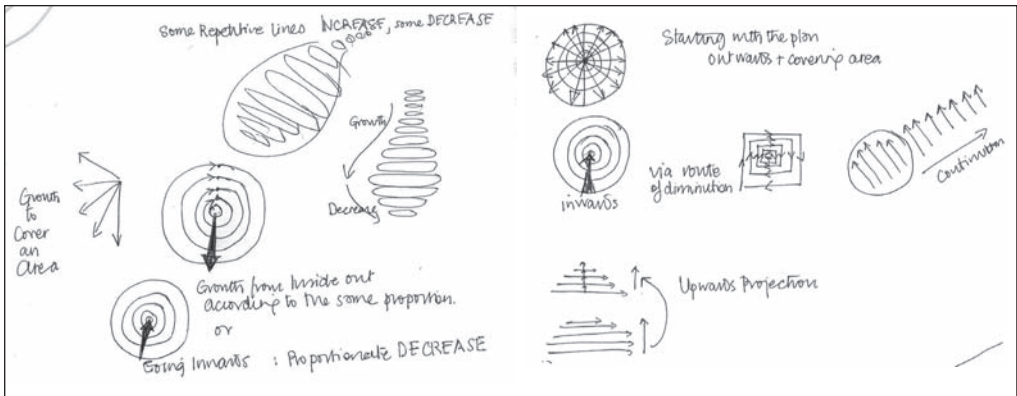 Some Repetitive lines INCREASE, some DECREASE
Growth
Decrease
Growth
to
Cover
an
Area
Growth from Inside out
according to the same proportion.
or
Going Inwards : Proportionate DECREASE
Starting with the plan
outwards + covering area
inwards
via route
of diminution
Continuation
Upwards Projection